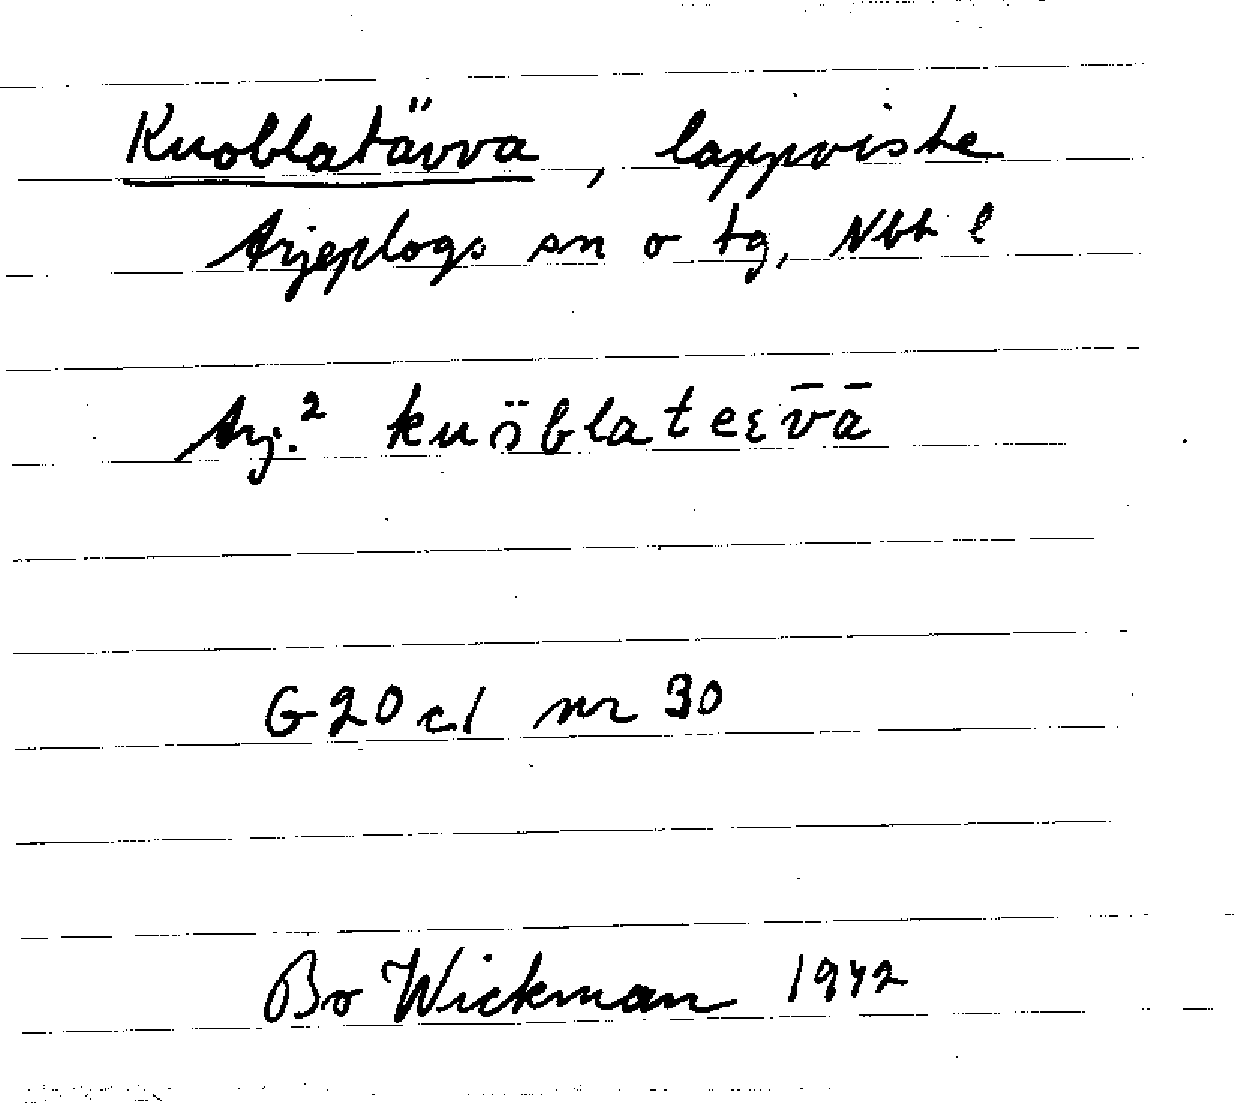 Kuoblatävva, lappviste
Arjeplogs sn o tg, Nbt l
Arj.² kuɔ̈blateɛv̄ā
G20c1 nr 30
Bo Wickman 1942